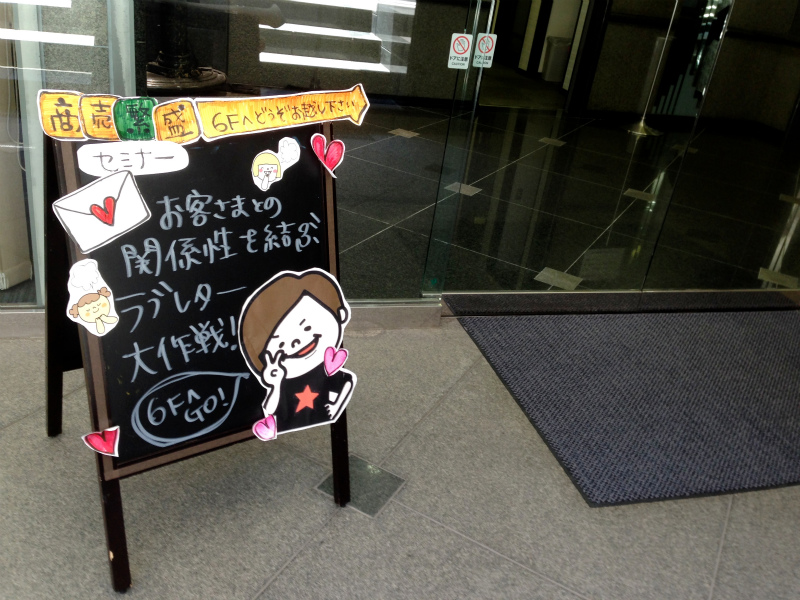 商売繁盛 6Fへどうぞお越し下さい
セミナー
お客さまとの
関係性を結ぶ
ラブレター
大作戦!
6Fへ
GO!